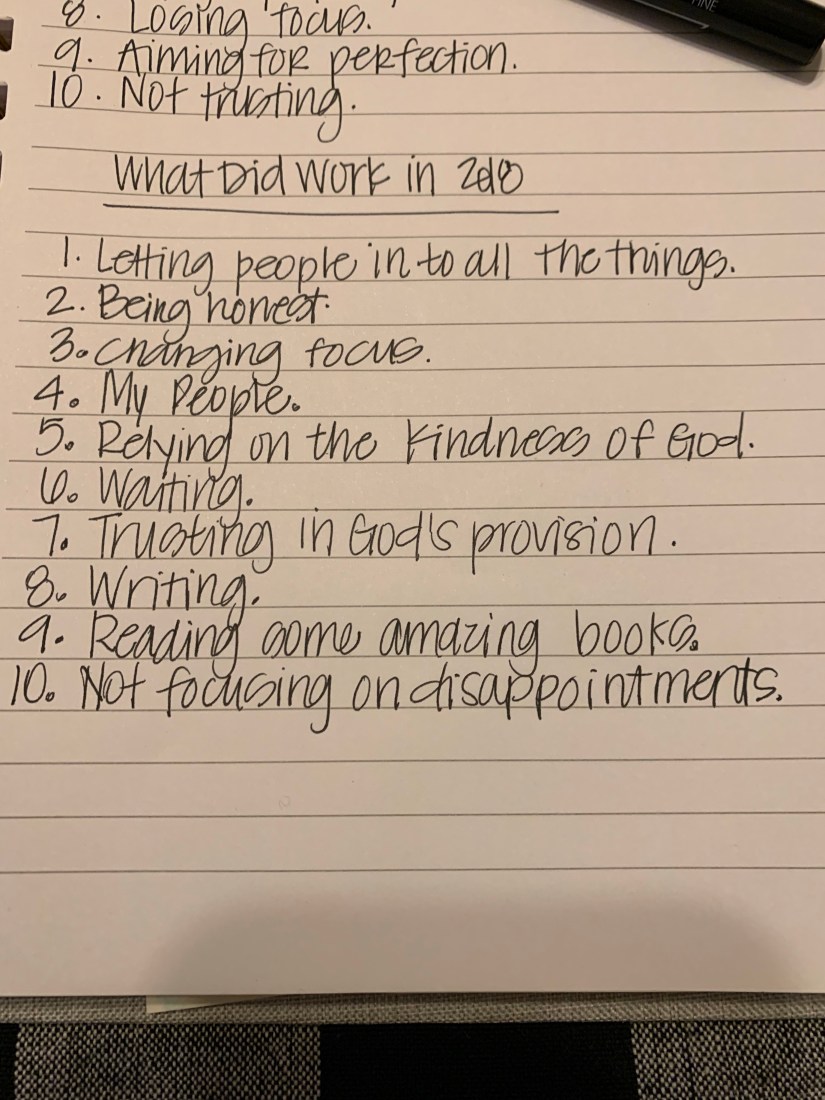 8. Losing focus.
9. Aiming for perfection.
10. Not trusting.
What Did Work in 2018
1. Letting people in to all the things.
2. Being honest.
3. Changing focus.
4. My People.
5. Relying on the Kindness of God.
6. Waiting.
7. Trusting in God's provision.
8. Writing.
9. Reading some amazing books.
10. Not focusing on disappointments.